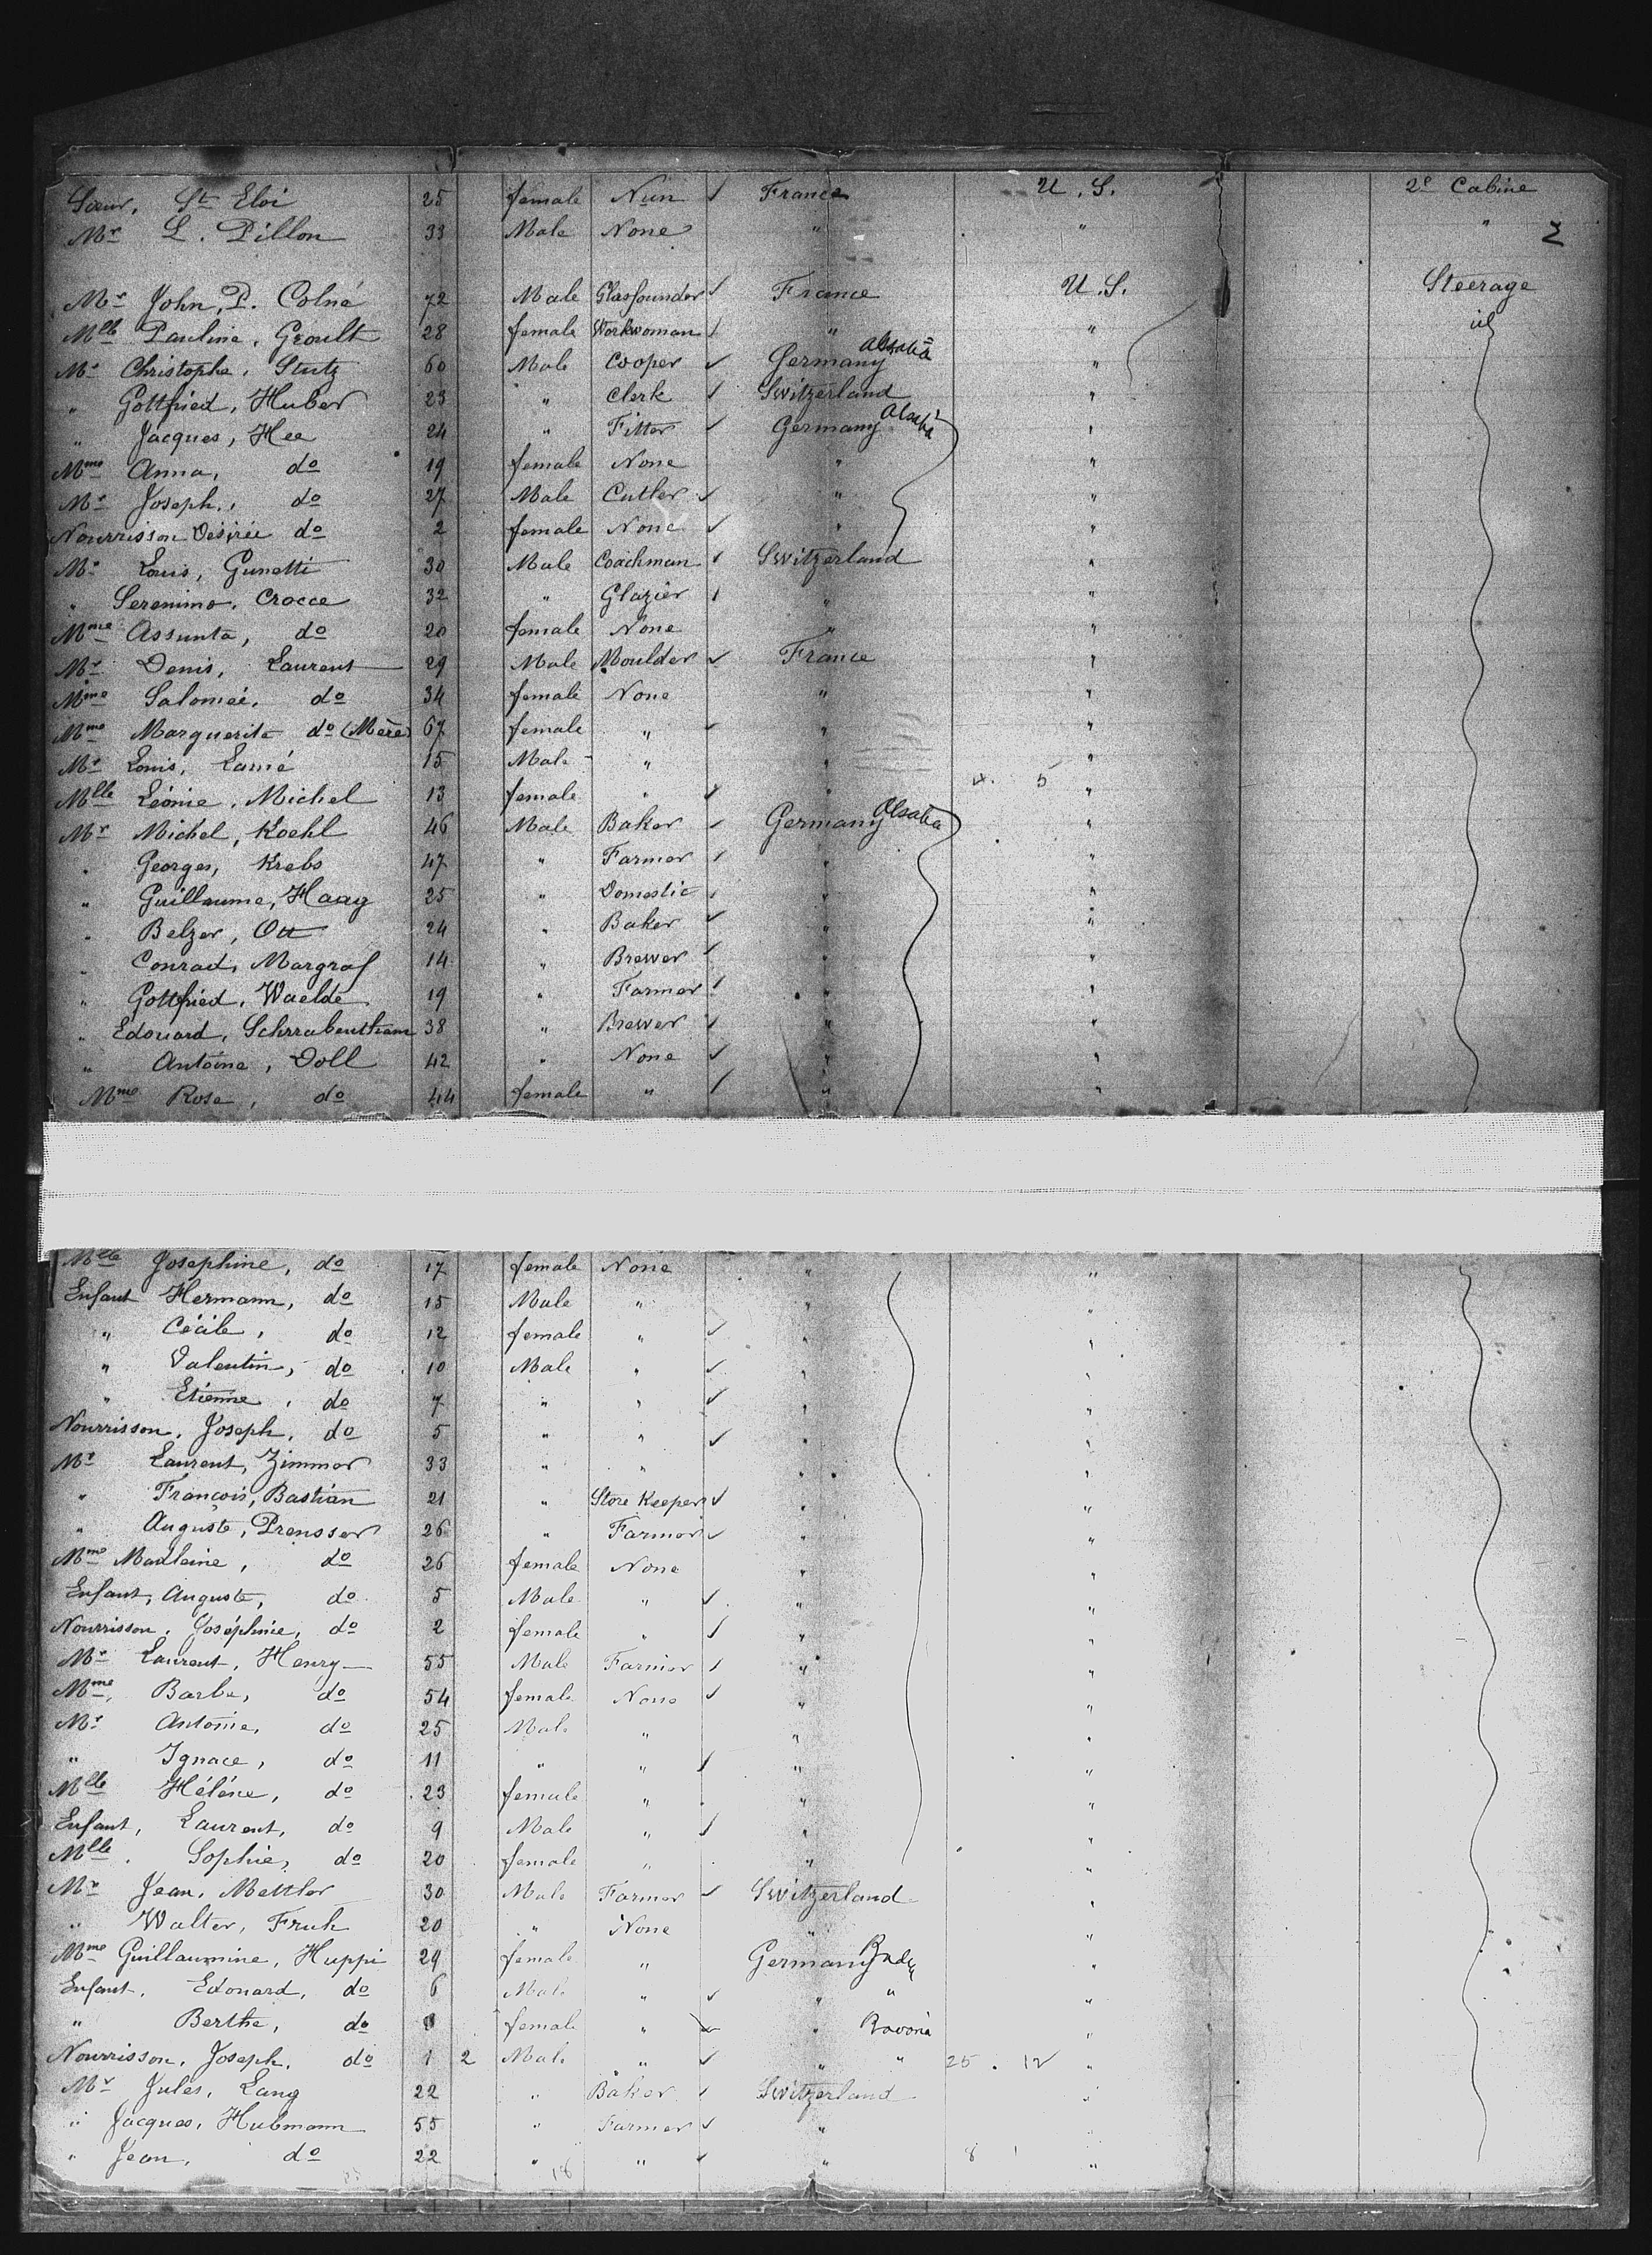 Sœur, St Eloi 25 female Nun France U. S. 2e Cabine
Mr L. Dillon 33 Male None " " " 2
Mr John, P. Colné 72 Male Glassfounder France U. S. Steerage
Mlle Pauline, Geoult 28 female Workwoman " " id
Mr Christophe, Stutz 60 Male Cooper Germany Alsatia "
" Gottfried, Huber 23 " Clerk Switzerland "
" Jacques, Hee 24 " Fitter Germany Alsatia "
Mme Anna, do 19 female None " "
Mr Joseph, do 27 Male Cutler " "
Nourrisson Désirée do 2 female None " "
Mr Louis, Gunetti 30 Male Coachman Switzerland "
" Seronimo, Crocce 32 " Glazier " "
Mme Assunta, do 20 female None " "
Mr Denis, Laurent 29 Male Moulder France "
Mme Salomée, do 34 female None " "
Mme Marguerite do (Mère) 67 female " " "
Mr Louis, Lamé 15 Male " " "
Mlle Léonie, Michel 13 female " " 4. 5 "
Mr Michel, Koehl 46 Male Baker Germany Alsatia "
" Georges, Krebs 47 " Farmer " "
" Guillaume, Haag 25 " Domestic " "
" Belzer, Ott 24 " Baker " "
" Conrad, Margraf 14 " Brewer " "
" Gottfried, Waelde 19 " Farmer " "
" Edouard, 38 " Brewer " "
" Antoine, Doll 42 " None " "
Mme Rose, do 44 female " " "
Mlle Josephine, do 17 female None " "
Enfant Hermann, do 15 Male " " "
" Cécile, do 12 female " " "
" Valentin, do 10 Male " " "
" Etienne, do 7 " " " "
Nourrisson, Joseph, do 5 " " " "
Mr Laurent, Zimmer 33 " " " "
" François, Bastian 21 " Store Keeper " "
" Auguste, Prensser 26 " Farmer " "
Mme Madleine, do 26 female None " "
Enfant, Auguste, do 5 Male " " "
Nourrisson, Joséphine, do 2 female " " "
Mr Laurent, Henry 55 Male Farmer " "
Mme Barbe, do 54 female None " "
Mr Antoine, do 25 Male " " "
" Ignace, do 11 " " " "
Mlle Hélène, do 23 female " " "
Enfant, Laurent, do 9 Male " " "
Mlle Sophie, do 20 female " " "
Mr Jean, Mettler 30 Male Farmer Switzerland "
" Walter, Fruh 20 " None " "
Mme Guillaumine, Huppi 29 female " Germany Baden "
Enfant, Edouard, do 6 Male " " " "
" Berthe, do female " " Bavaria "
Nourrisson, Joseph, do 1 2 Male " " " 25 . 12 "
Mr Jules, Lang 22 " Baker Switzerland "
" Jacques, Hubmann 55 " Farmer "
" Jean, do 22 " " " 8 1 "
18